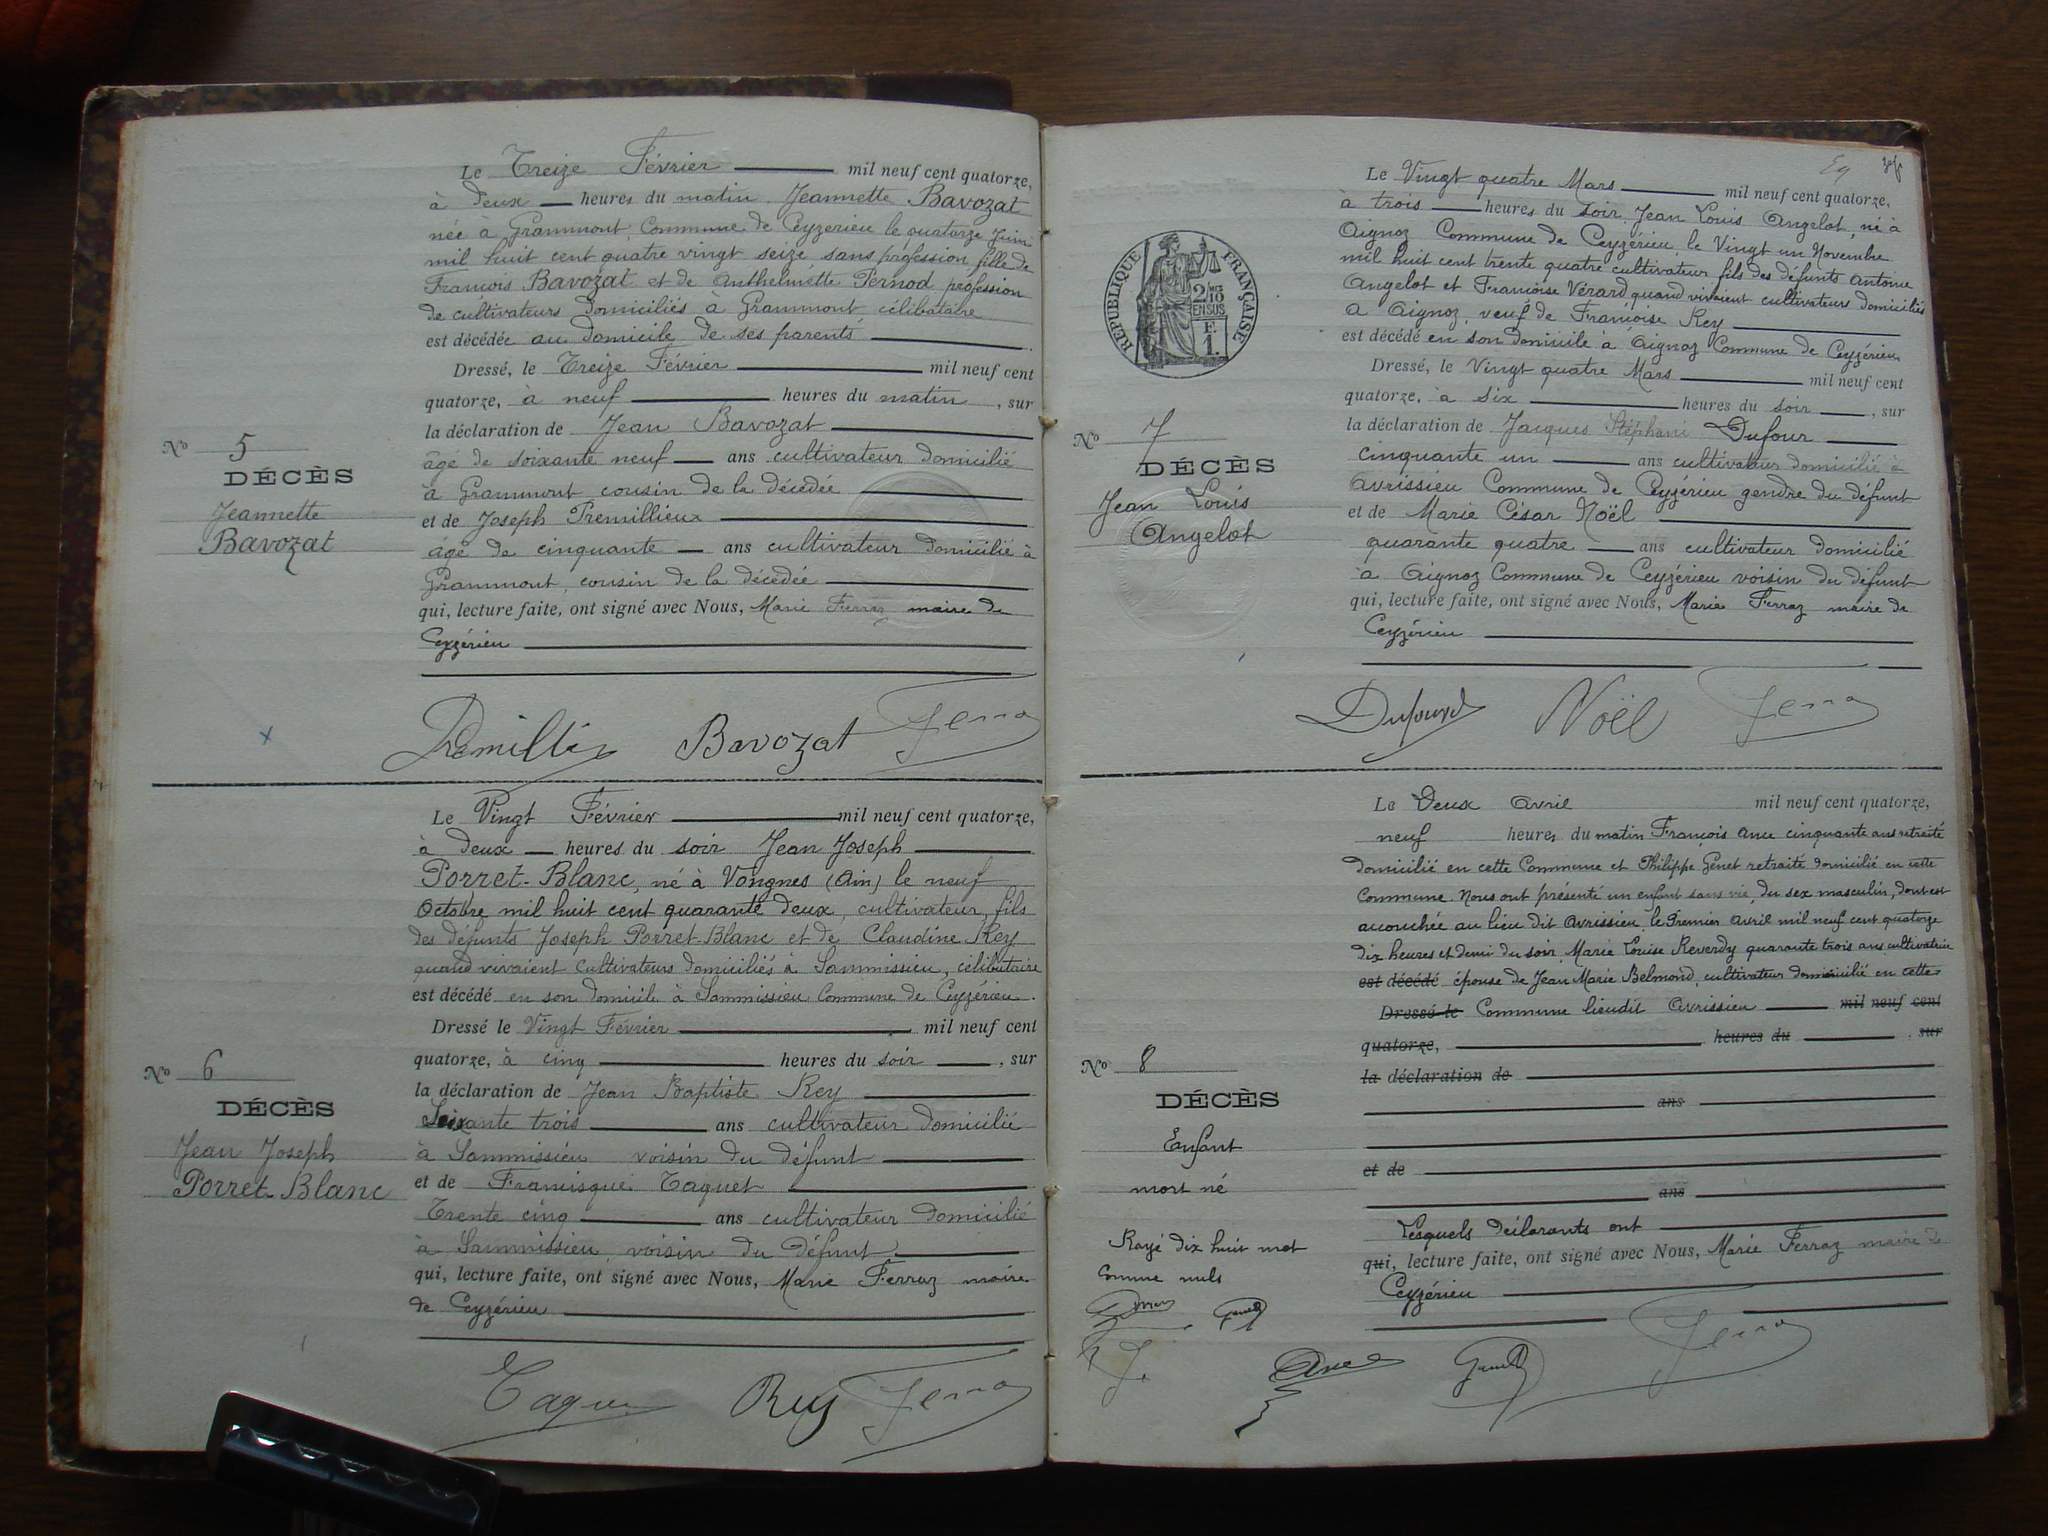 Le Treize Février mil neuf cent quatorze,
à deux heures du matin Jeannette Bavozat
née à Grammont, Commune de Ceyzérieu le quatorze Juin
mil huit cent quatre vingt seize sans profession fille de
François Bavozat et de Anthelmette Pernod profession
de cultivateurs domiciliés à Grammont célibataire
est décédée au domicile de ses parents
Dressé, le Treize Février mil neuf cent
quatorze, à neuf heures du matin, sur
la déclaration de Jean Bavozat
âgé de soixante neuf ans cultivateur domicilié
à Grammont cousin de la décédée
et de Joseph Premillieux
âgé de cinquante ans cultivateur domicilié à
Grammont, cousin de la décédée
qui, lecture faite, ont signé avec Nous, Marie Ferraz maire de
Ceyzérieu
No 5
DÉCÈS
Jeannette
Bavozat
Bavozat
Le Vingt Février mil neuf cent quatorze,
à deux heures du soir Jean Joseph
Porret-Blanc, né à Vongnes (Ain) le neuf
Octobre mil huit cent quarante deux, cultivateur, fils
des défunts Joseph Porret-Blanc et de Claudine Rey
quand vivaient cultivateurs domiciliés à Sammissieu, célibataire
est décédé en son domicile à Sammissieu Commune de Ceyzérieu.
Dressé le Vingt Février mil neuf cent
quatorze, à cinq heures du soir, sur
la déclaration de Jean Baptiste Rey
Soixante trois ans cultivateur domicilié
à Sammissieu voisin du défunt
et de Francisque Taquet
Trente cinq ans cultivateur domicilié
à Sammissieu, voisin du défunt
qui, lecture faite, ont signé avec Nous, Marie Ferraz maire
de Ceyzérieu
No 6
DÉCÈS
Jean Joseph
Porret-Blanc
Rey
Le Vingt quatre Mars mil neuf cent quatorze,
à trois heures du soir, Jean Louis Angelot, né à
Aignoz Commune de Ceyzérieu le Vingt un Novembre
mil huit cent trente quatre cultivateur fils des défunts Antoine
Angelot et Françoise Vérard quand vivaient cultivateurs domiciliés
à Aignoz, veuf de Françoise Rey
est décédé en son domicile à Aignoz Commune de Ceyzérieu
Dressé, le Vingt quatre Mars mil neuf cent
quatorze, à six heures du soir, sur
la déclaration de Jacques Stéphani Dufour
cinquante un ans cultivateur domicilié à
Avrissieu Commune de Ceyzérieu gendre du défunt
et de Marie César Noël
quarante quatre ans cultivateur domicilié
à Aignoz Commune de Ceyzérieu voisin du défunt
qui, lecture faite, ont signé avec Nous, Marie Ferraz maire de
Ceyzérieu
RÉPUBLIQUE FRANÇAISE
2/10
EN SUS
F.
1.
No 7
DÉCÈS
Jean Louis
Angelot
Noël
Le Deux Avril mil neuf cent quatorze,
neuf heures du matin François Ance cinquante ans retraité
domicilié en cette Commune et Philippe Genet retraité domicilié en cette
Commune. Nous ont présenté un enfant sans vie, du sex masculin, dont est
accouchée au lieu dit Avrissieu, le Premier Avril mil neuf cent quatorze
dix heures et demi du soir, Marie Louise Reverdy quarante trois ans cultivatrice
est décédé épouse de Jean Marie Belmond, cultivateur domicilié en cette
Dressé le Commune lieudit Avrissieu mil neuf cent
quatorze, heures du, sur
la déclaration de
ans
et de
ans
Lesquels déclarants ont
qui, lecture faite, ont signé avec Nous, Marie Ferraz maire de
Ceyzérieu
No 8
DÉCÈS
Enfant
mort né
Rayé dix huit mot
comme nuls
Ance